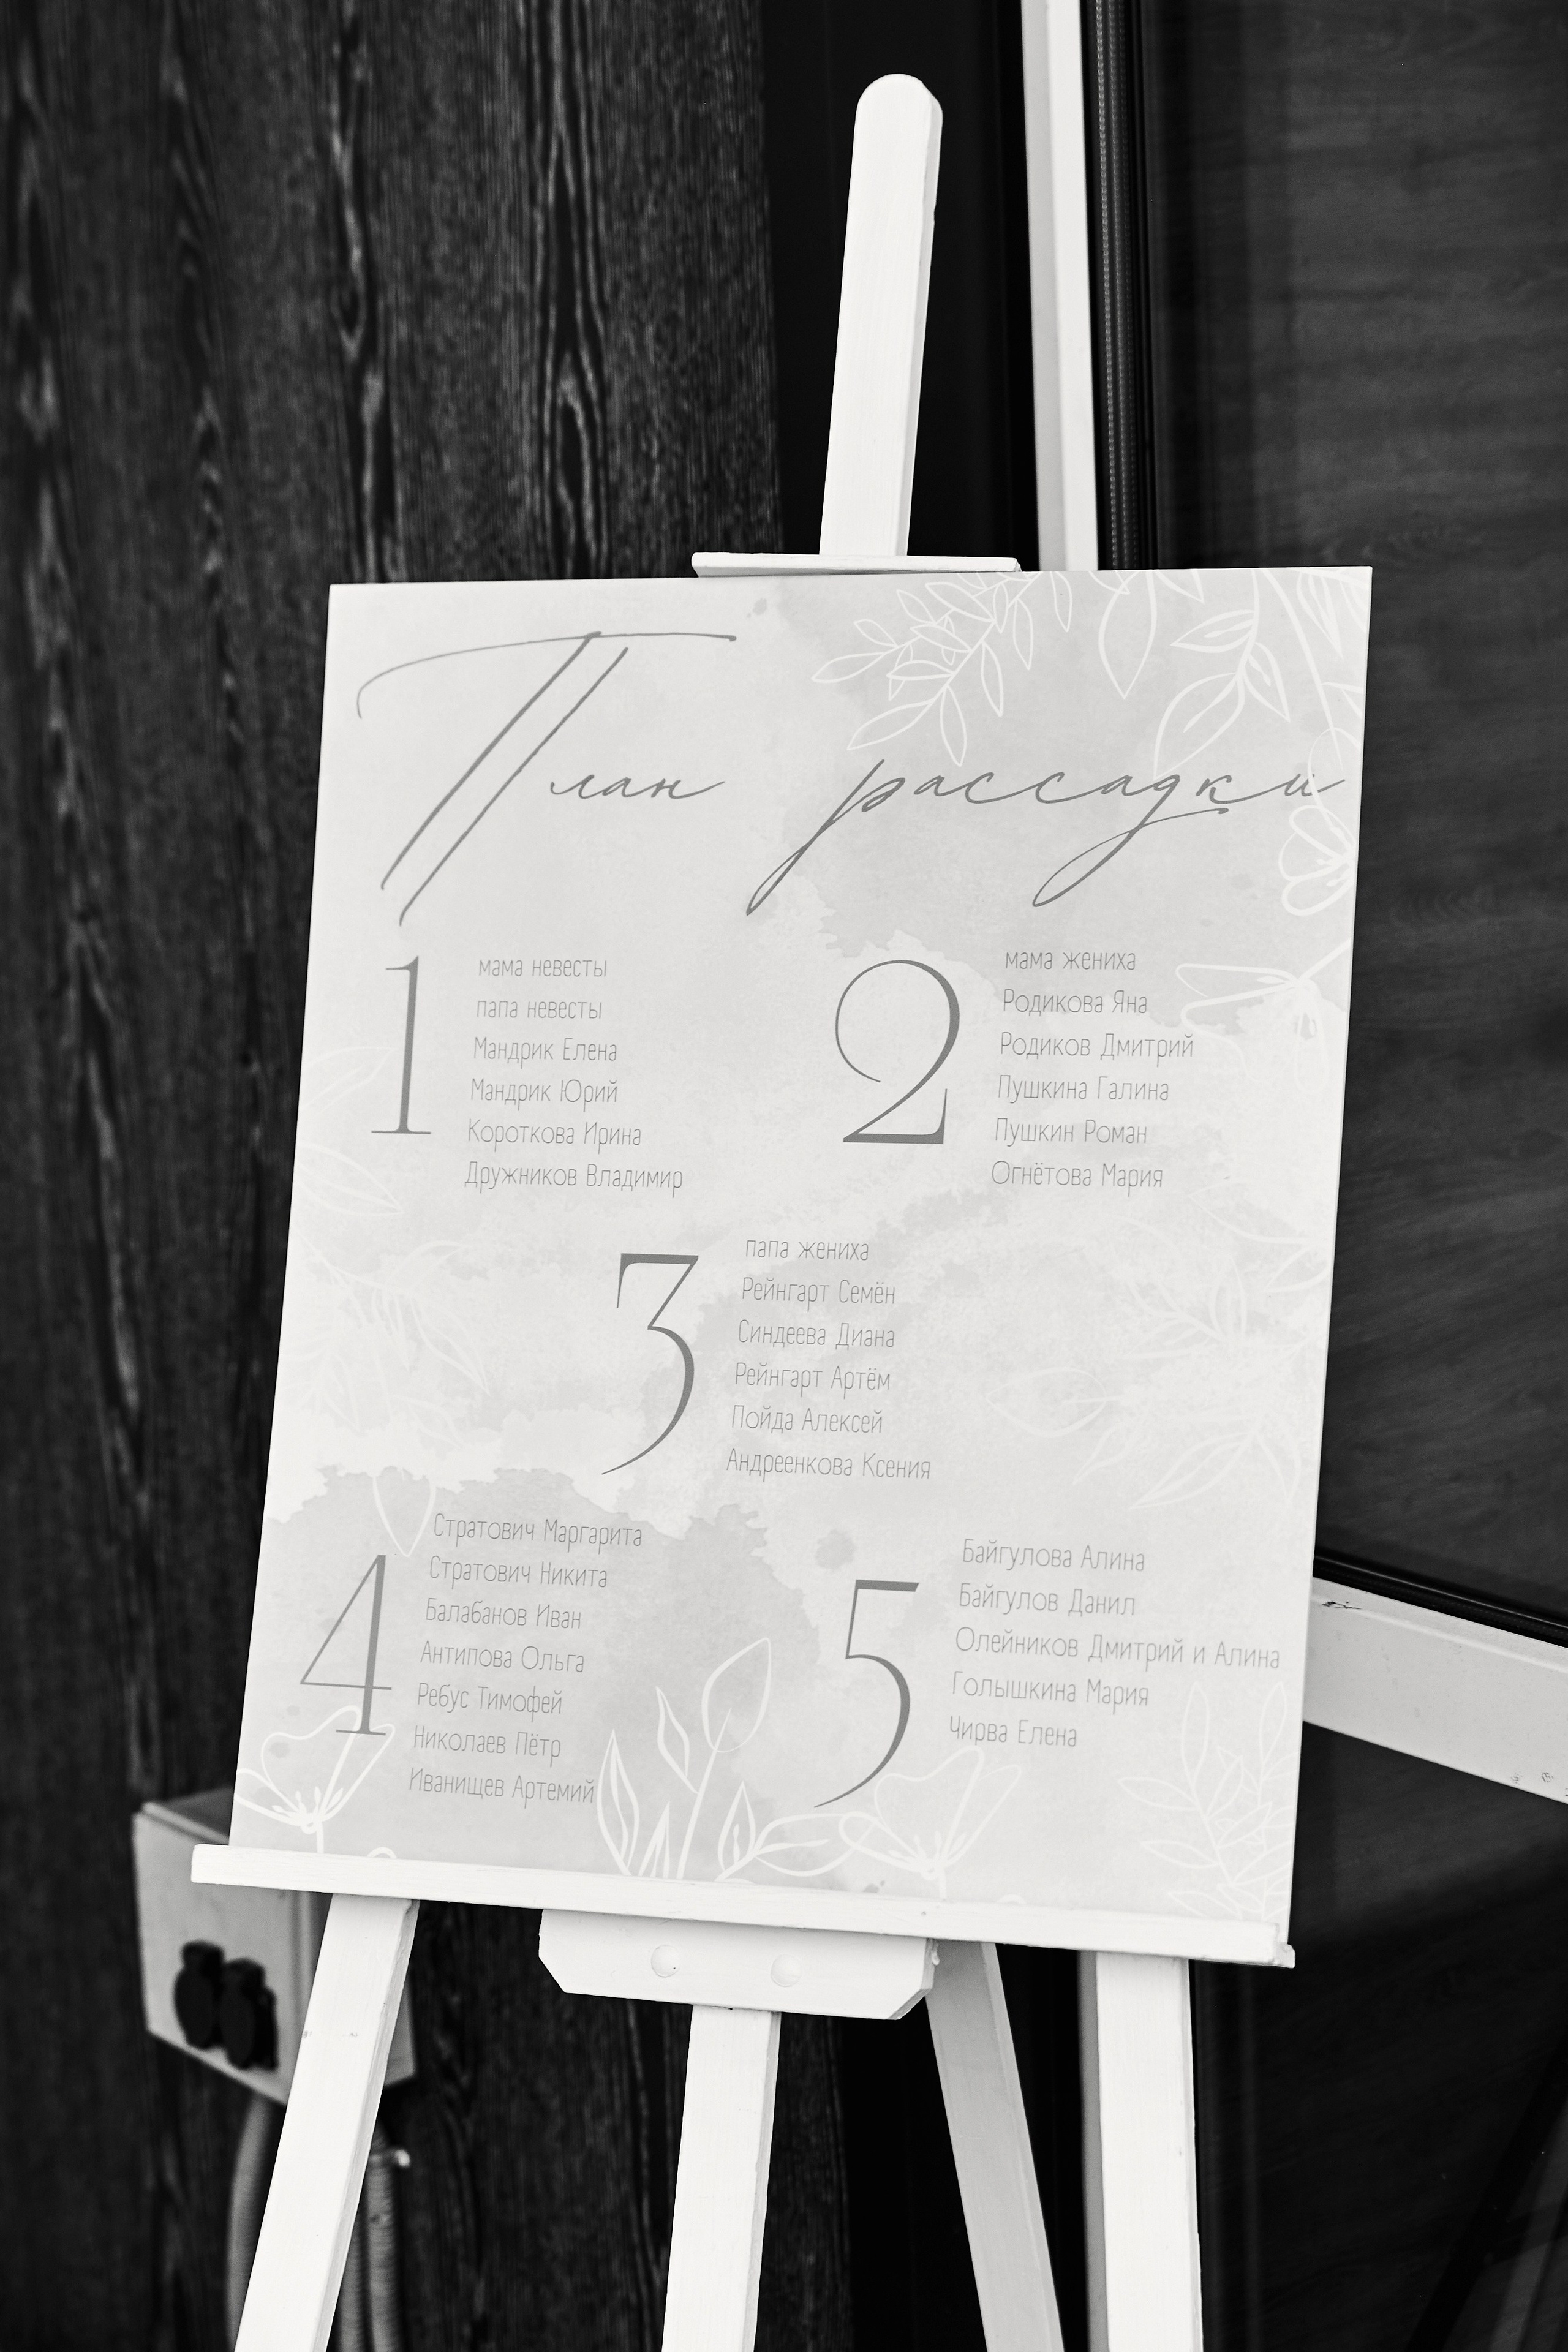 План рассадки
1
мама невесты
папа невесты
Мандрик Елена
Мандрик Юрий
Короткова Ирина
Дружников Владимир
2
мама жениха
Родикова Яна
Родиков Дмитрий
Пушкина Галина
Пушкин Роман
Огнётова Мария
3
папа жениха
Рейнгарт Семён
Синдеева Диана
Рейнгарт Артём
Пойда Алексей
Андреенкова Ксения
4
Стратович Маргарита
Стратович Никита
Балабанов Иван
Антипова Ольга
Ребус Тимофей
Николаев Пётр
Иванищев Артемий
5
Байгулова Алина
Байгулов Данил
Олейников Дмитрий и Алина
Голышкина Мария
Чирва Елена